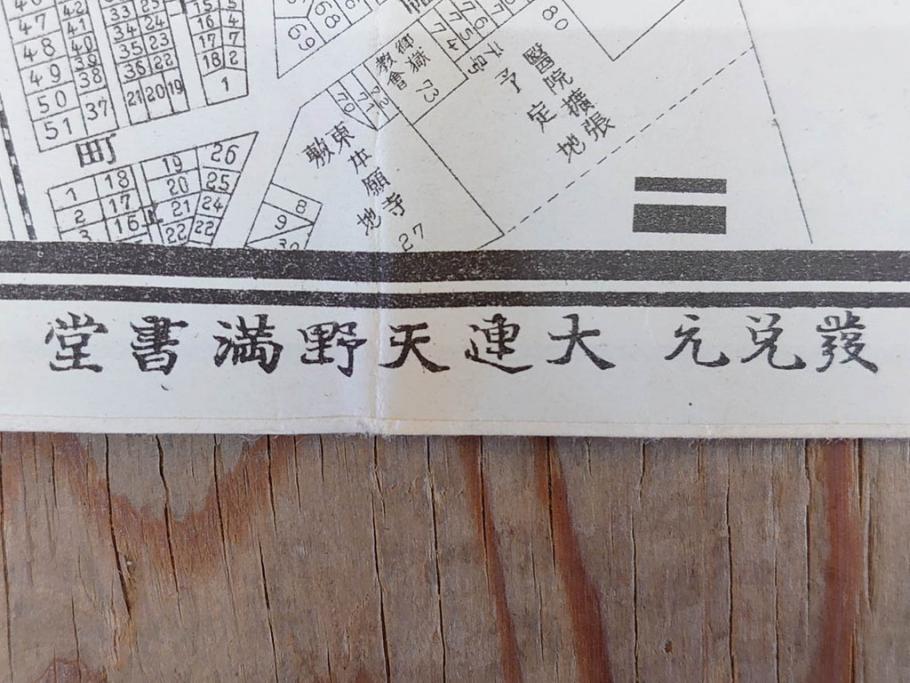 47 41
48 40
49 39
50 38
51 37
34 24
35 23
36 22
21 20 19
16 4
17
18 2
1
町
1 18 19 26
2 17 20 25
16 21 24
22 22
68
69
80
御嶽
教會
73
醫院擴張
予定地
東本願寺
敷地
27
8
9
發兌元 大連天野満書堂